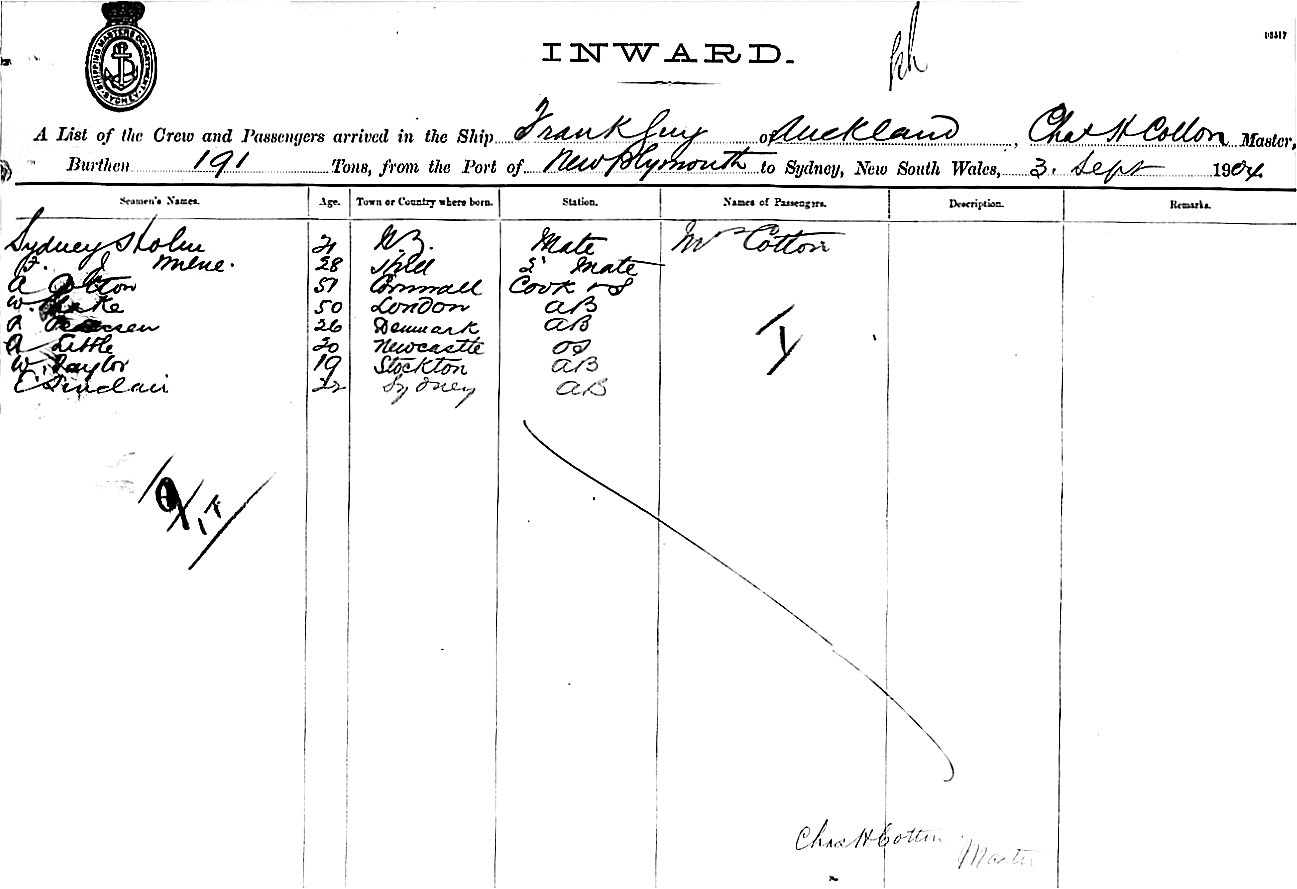 SHIPPING MASTERS DEPARTMENT SYDNEY
INWARD.
A List of the Crew and Passengers arrived in the Ship Frank Guy of Auckland, Chas H Cotton Master,
Burthen 191 Tons, from the Port of New Plymouth to Sydney, New South Wales, 3. Sept 1904
Seamen's Names. Age. Town or Country where born. Station. Names of Passengers. Description. Remarks.
Sydney Holm 21 N.Z. Mate Mrs Cotton
J. Milne. 28 2d Mate
A Cotton 51 Cornwall Cook & S
W. Lake 50 London AB
Petersen 26 Denmark AB
A Little 20 Newcastle OS
W. Taylor 19 Stockton AB
E Sinclair 22 Sydney AB
1
9
Chas H Cotton Master